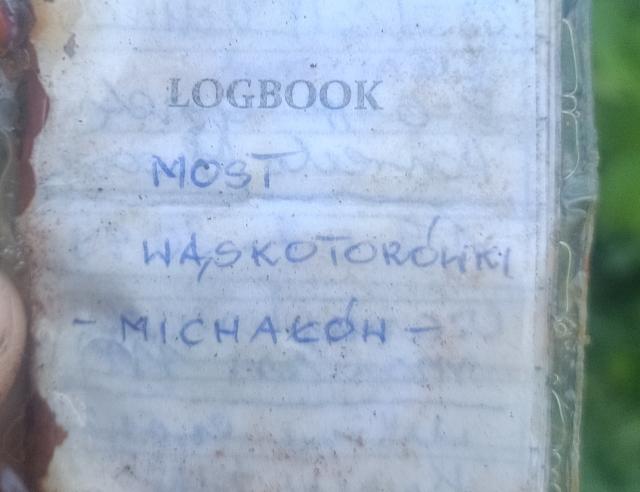 LOGBOOK
MOST
WĄSKOTORÓWKI
- MICHAŁÓW -